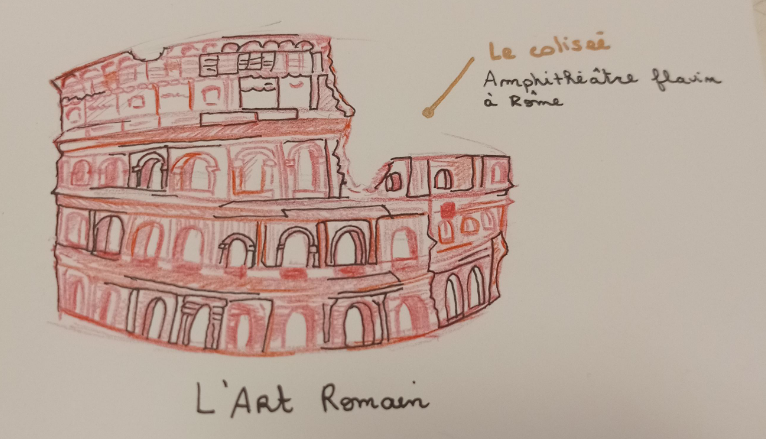 Le coliseé
Amphithéâtre flavin
à Rome
L'ARt Romain